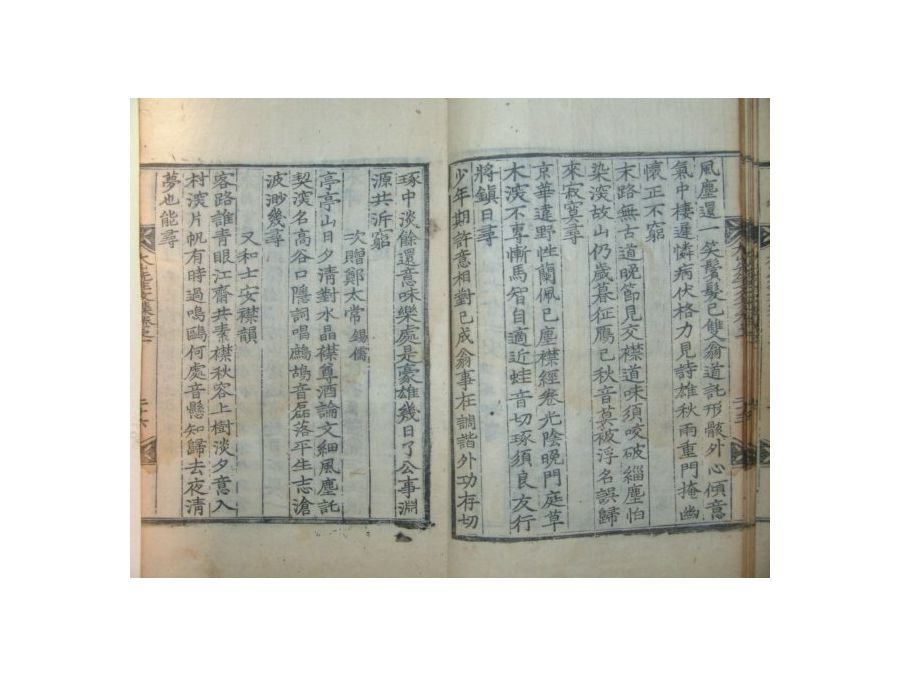 風塵還一笑鬢髮已雙翁道託形骸外心傾意
氣中棲遲憐病伏格力見詩雄秋雨重門掩幽
懷正不窮
末路無古道晚節見交襟道味須咬破緇塵怕
染深故山仍歲暮征鴈已秋音莫被浮名誤歸
來寂寞尋
京華違野性蘭佩已塵襟經卷光陰晚門庭草
木深不專慚馬智自適近蛙音切琢須良友行
將鎭日尋
少年期許意相對已成翁事在調諧外功存切
琢中淡餘還意味樂處是豪雄幾日了公事淵
源共泝窮
次贈鄭太常錫儒
亭亭山日夕清對水晶襟尊酒論文細風塵託
契深名高谷口隱詞唱鷓鴣音磊落平生志滄
波渺幾尋
又和士安襟韻
客路誰青眼江齋共素襟秋容上樹淡夕意入
村深片帆有時過鳴鷗何處音懸知歸去夜清
夢也能尋